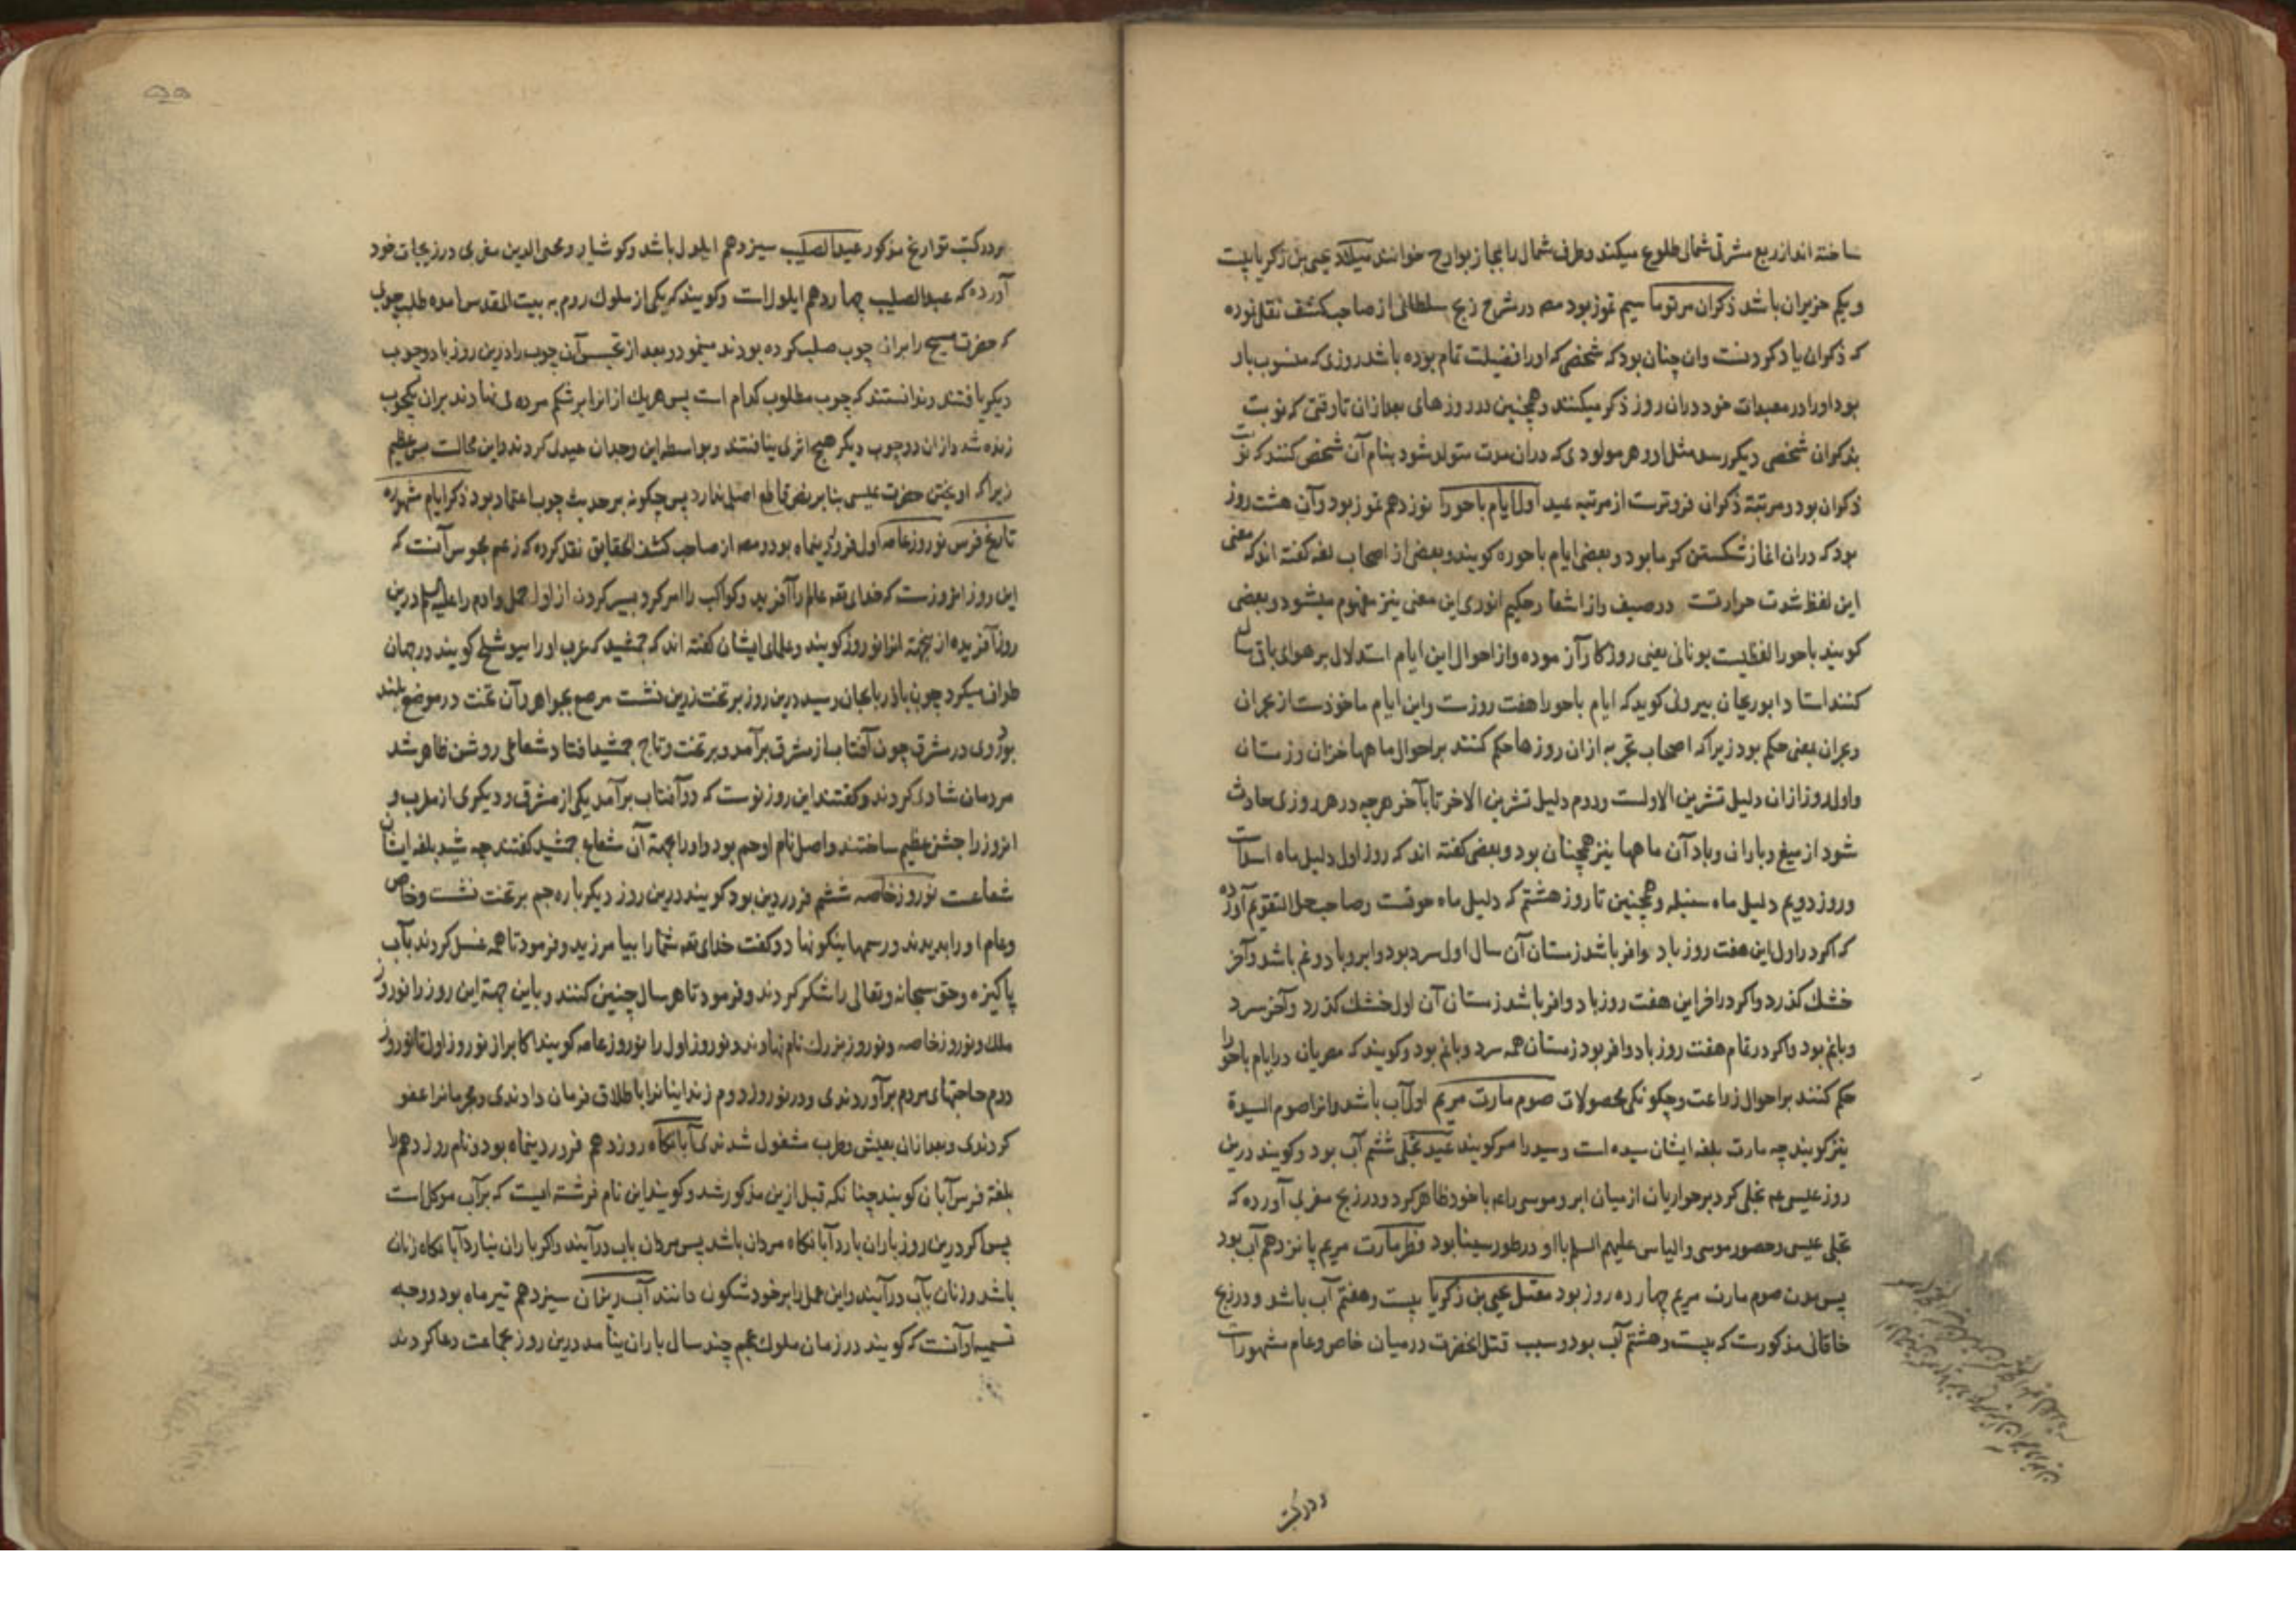 ساخته اند از ربع مشرقی شمالی طلوع میکند و طرف شمال را مجاز بوارح خوانند میلاد یحیی بن زکریا بیست
و یکم حزیران باشد ذکران مرتوما سیم تموز بود مصـ در شرح زیج سلطانی از صاحب کشف نقل نموده
که ذکران یاد کردنست وان چنان بود که شخصی که او را فضیلت تمام بوده باشد روزی که منسوب باو
بود او را در معبدات خود دران روز ذکر میکنند و همچنین در روزهای بعد ازان تا وقتی که نوبت
بذکران شخصی دیگر رسد مثل او و هر مولودی که دران مدت متولد شود بنام آن شخص کنند که نوبت
ذکران بود و مرتبه ذکران فروترست از مرتبه عید اول ایام باحورا نوزدهم تموز بود وآن هشت روز
بود که دران اغاز شکستن کرما بود و بعضی ایام باحوره کویند و بعضی از اصحاب لغه کفته اند که معنی
این لفظ شدت حرارتست در صیف و از اشعار حکیم انوری این معنی نیز مفهوم میشود و بعضی
کویند باحورا لفظیست یونانی یعنی روزکار آزموده و از احوال این ایام استدلال بر هوای باقی سال
کنند استاد ابوریحان بیرونی کوید که ایام باحورا هفت روزست و این ایام ماخوذست از بحران
و بحران بمعنی حکم بود زیرا که اصحاب تجربه ازان روزها حکم کنند بر احوال ماهها خزان و زمستان
و اول روز ازان دلیل تشرین الاولست و دوم دلیل تشرین الاخر تا بآخر هرچه در هر روزی حادث
شود از میغ و باران و باد آن ماهها نیز همچنان بود و بعضی کفته اند که روز اول دلیل ماه اسدست
و روز دویم دلیل ماه سنبله و همچنین تا روز هشتم که دلیل ماه حوتست و صاحب حل التقویم آورده
که اکر در اول این هفت روز باد وافر باشد زمستان آن سال اول سرد بود و ابر و باد و نم باشد و آخر
خشك کذرد و اکر در اخر این هفت روز باد وافر باشد زمستان آن اول خشك کذرد و آخر سرد
و بانم بود و اکر در تمام هفت روز باد وافر بود زمستان همه سرد و بانم بود و کویند که مصریان در ایام باحورا
حکم کنند بر احوال زراعت و چکونکی محصولات صوم مارت مریم اول آب باشد و انرا صوم السیدة
نیز کویند چه مارت بلغه ایشان سیده است و سید را مر کویند عید تجلی ششم آب بود و کویند درین
روز عیسی عم تجلی کرد بر حواریان از میان ابر و موسی راعم با خود ظاهر کرد و در زیج مغربی آورده که
تجلی عیسی و حضور موسی و الیاس علیهم السلم با او در طور سینا بود فطر مارت مریم پانزدهم آب بود
پس مدت صوم مارت مریم چهارده روز بود مقتل یحیی بن زکریا بیست و هفتم آب باشد و در زیج
خاقانی مذکورست که بیست و هشتم آب بود و سبب قتل انحضرت در میان خاص و عام مشهورست
و در کتب
و در کتب تواریخ مذکور عید الصلیب سیزدهم ایلول باشد و کوشیار و محیی الدین مغربی در زیجات خود
آورده که عید الصلیب چهاردهم ایلول است و کویند که یکی از ملوك روم به بیت المقدس امده طلب چوبی
که حضرت مسیح را بران چوب صلب کرده بودند مینمود و بعد از تجسس آن چوب را درین روز با دو چوب
دیکر یافتند و ندانستند که چوب مطلوب کدام است پس هر یك از انرا بر شکم مرده ی نهادند بران یکچوب
زنده شد و از ان دو چوب دیکر هیچ اثری نیافتند و بواسطه این وجدان عید کردند و این محالست بس عظیم
زیرا که اویختن حضرت عیسی بنابر نص قاطع اصلی ندارد پس چکونه بر حدیث چوب اعتماد بود ذکر ایام شهوره
تاریخ فرس نوروز عامه اول فروردینماه بود و مصـ از صاحب کشف الحقایق نقل کرده که زعم مجوس آنست که
این روز انروزست که خدای تعـ عالم را آفرید و کواکب را امر کرد بسیر کردن از اول حمل و ادم را علیه السلم درین
روز آفریده ازینجهة انرا نوروز کویند و علمای ایشان کفته اند که جمشید که عرب او را سیوشلخ کویند در جهان
طواف میکرد چون باذربایجان رسید درین روز بر تخت زرین نشست مرصع بجواهر و آن تخت در موضع بلند
بود روی در مشرق چون آفتاب از مشرق برآمد و بر تخت و تاج جمشید افتاد شعاعی روشن ظاهر شد
مردمان شادی کردند و کفتند این روز نوست که دو آفتاب برآمد یکی از مشرق و دیکری از مغرب و
انروز را جشن عظیم ساختند و اصل نام او جم بود و او را بجهة آن شعاع جمشید کفتند چه شید بلغه ایشان
شعاعست نوروز خاصه ششم فروردین بود کویند درین روز دیکر باره جم بر تخت نشست و خاص
و عام او را بدیدند و رسمها نیکو نهاد و کفت خدای تعـ شما را بیامرزید و فرمود تا همه غسل کردند بآب
پاکیزه و حق سبحانه و تعالی را شکر کردند و فرمود تا هر سال چنین کنند و باین جهة این روز را نوروز
ملك و نوروز خاصه و نوروز بزرك نام نهادند و نوروز اول را نوروز عامه کویند اکابر از نوروز اول تا نوروز
دوم حاجتهای مردم برآوردندی و در نوروز دوم زندانیانرا باطلاق فرمان دادندی و مجرمانرا عفو
کردندی و بعد ازان بعیش و طرب مشغول شدندی آبانکاه روز دهم فروردینماه بود و نام روز دهم را
بلغة فرس آبان کویند چنانکه قبل ازین مذکور شد و کویند این نام فرشته ایست که بر آب موکل است
پس اکر درین روز باران بارد آبانکاه مردان باشد پس مردان بآب درآیند و اکر باران نبارد آبانکاه زنان
باشد و زنان بآب درآیند و این عمل را بر خود شکون دانند آب ریزان سیزدهم تیر ماه بود و وجه
تسمیه او آنست که کویند در زمان ملوك عجم چند سال باران نیامد درین روز بجماعت دعا کردند